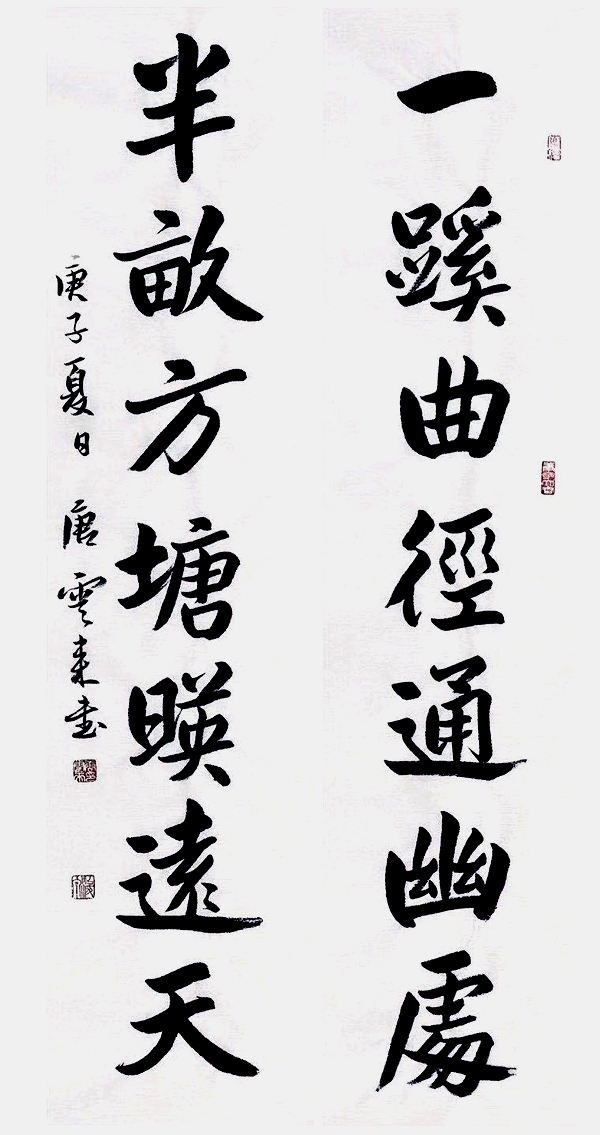 一蹊曲徑通幽處
半畝方塘暎遠天
庚子夏日 唐雲来書